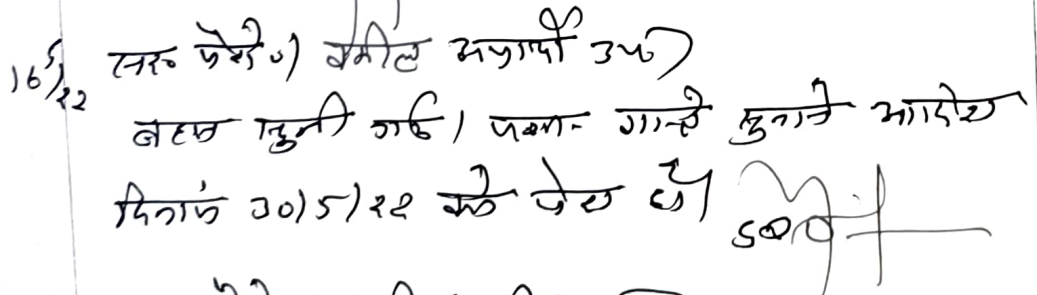 16/5/22 पेश। वकील अपार्थी उप०
बहस सुनी गई। पत्रा० वास्ते सुनाने आदेश
दिनांक 30/5/22 को पेश हो।
SDO